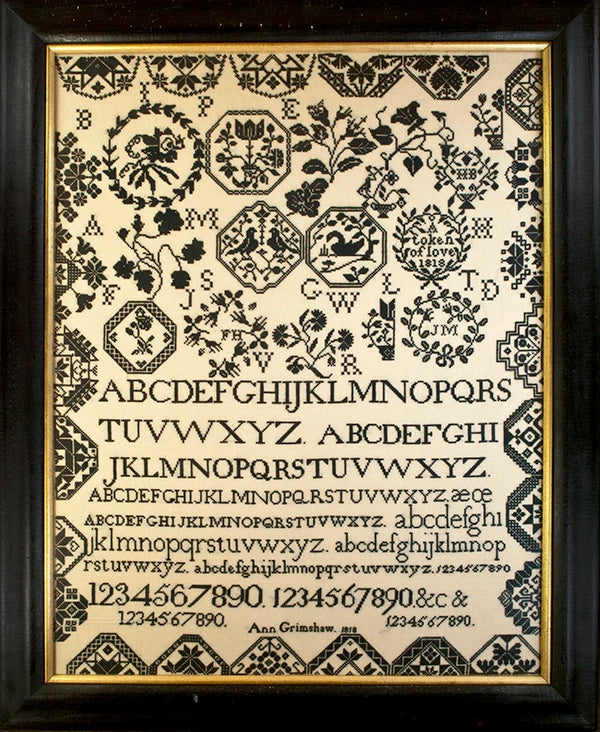 I
B P E
HB
A M H
A
token
of love
1818
F J S L T D
C W
FH JM
V R
ABCDEFGHIJKLMNOPQRS
TUVWXYZ. ABCDEFGHI
JKLMNOPQRSTUVWXYZ.
ABCDEFGHIJKLMNOPQRSTUVWXYZ.æœ
ABCDEFGHIJKLMNOPQRSTUVWXYZ. abcdefghi
jklmnopqrstuvwxyz. abcdefghijklmnop
rstuvwxyz. abcdefghijklmnopqrstuvwxyz.1234567890
1234567890. 1234567890.&c &
1234567890. Ann Grimshaw. 1818 1234567890.